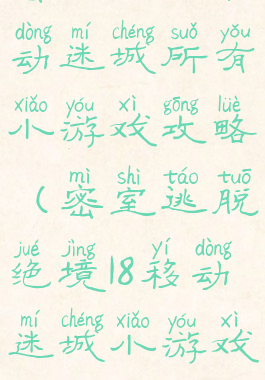 dòng mí chéng suǒ yǒu
动迷城所有
xiǎo yóu xì gōng lüè
小游戏攻略
mì shì táo tuō
(密室逃脱
jué jìng yí dòng
绝境18移动
mí chéng xiǎo yóu xì
迷城小游戏